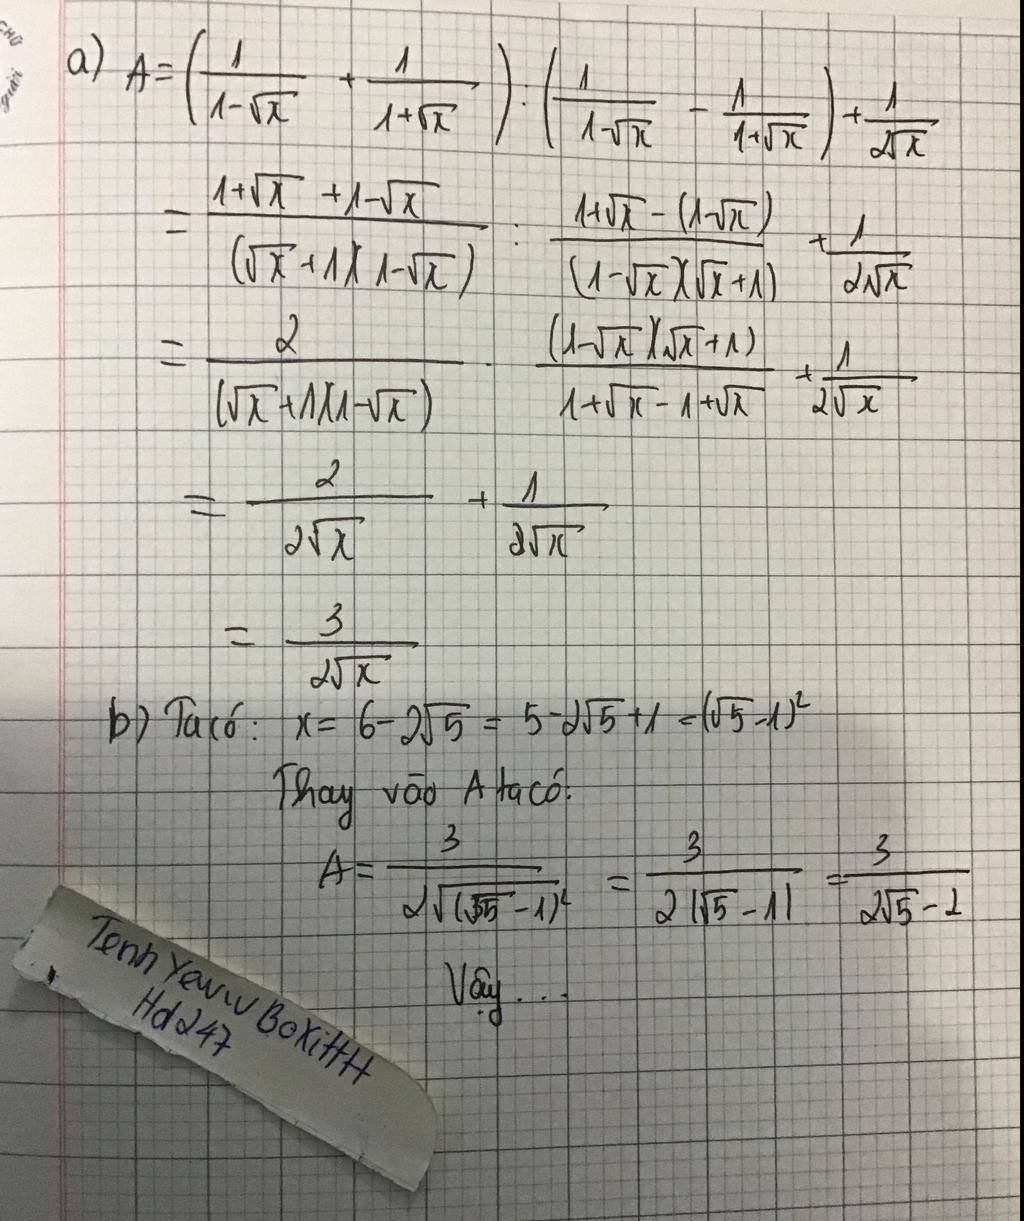 CHỮ
a) A = (1/(1-√x) + 1/(1+√x)) : (1/(1-√x) - 1/(1+√x)) + 1/(2√x)
= (1+√x + 1-√x)/((√x+1)(1-√x)) : (1+√x-(1-√x))/((1-√x)(√x+1)) + 1/(2√x)
= 2/((√x+1)(1-√x)) · ((1-√x)(√x+1))/(1+√x-1+√x) + 1/(2√x)
= 2/(2√x) + 1/(2√x)
= 3/(2√x)
b) Ta có: x = 6-2√5 = 5-2√5+1 = (√5-1)²
Thay vào A ta có:
A = 3/(2√((√5-1)²)) = 3/(2|√5-1|) = 3/(2√5-2)
Vậy ...
Hd247